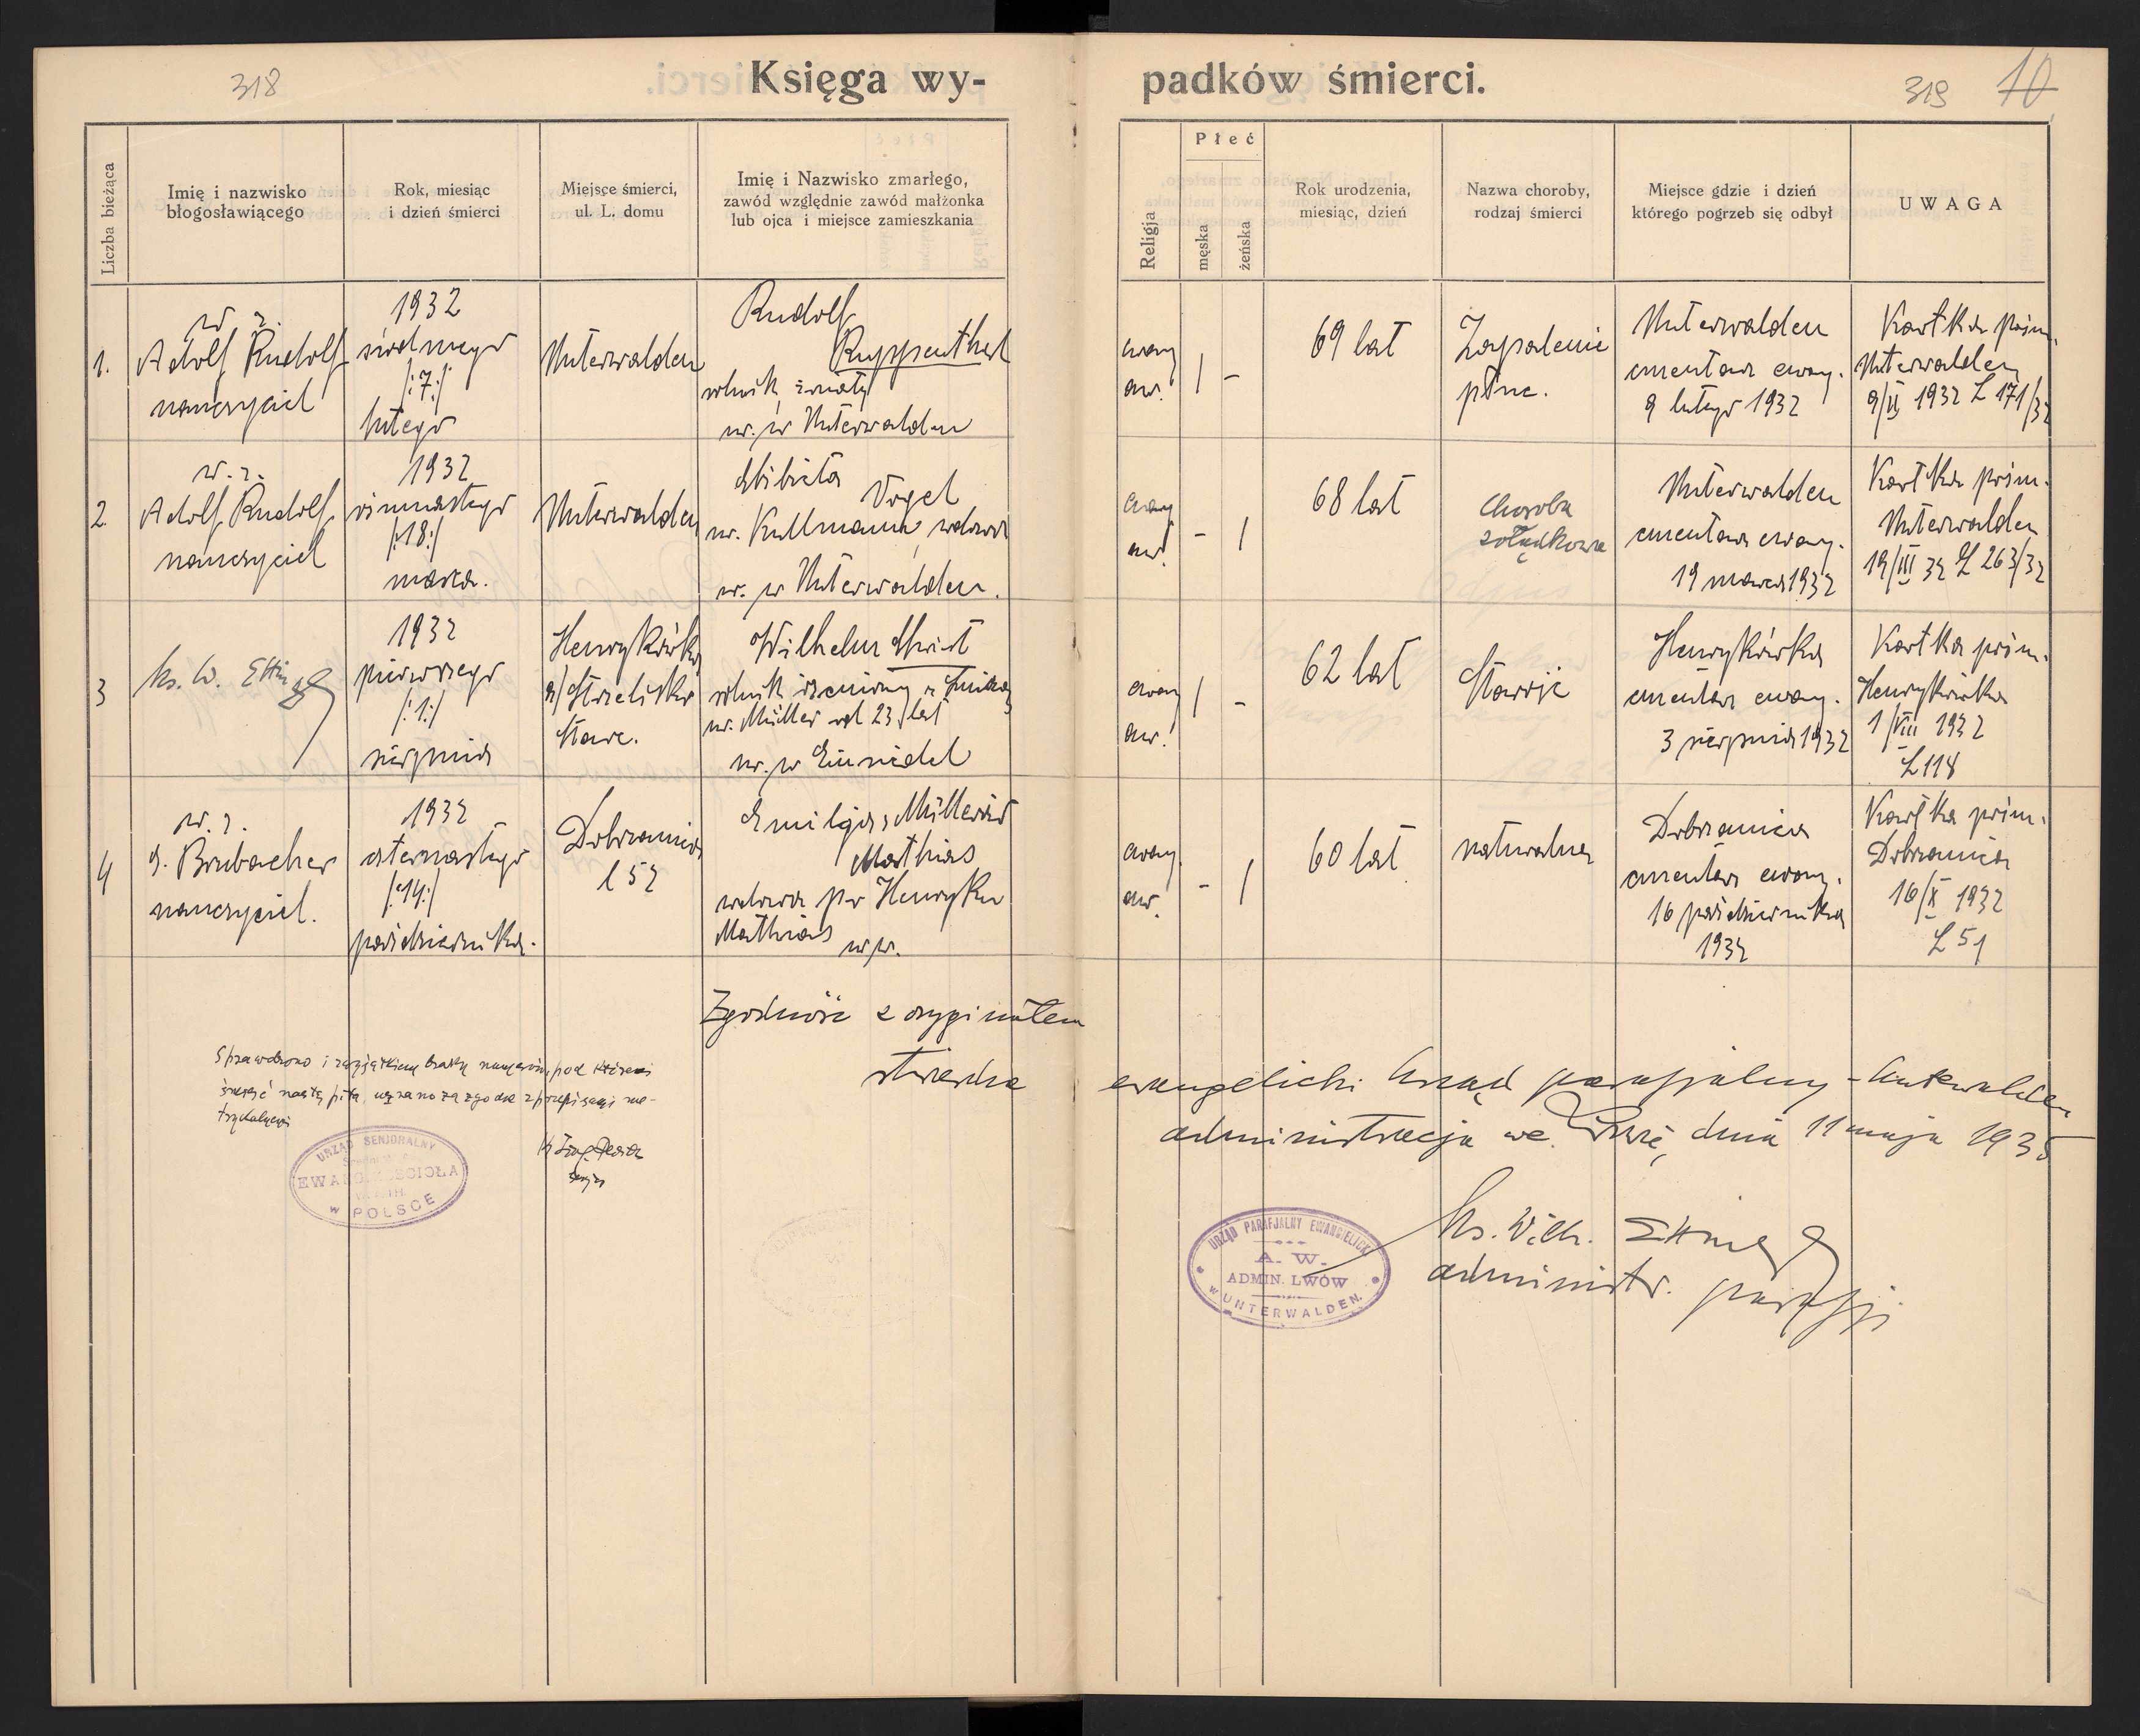 318
Księga wy-
padków śmierci.
319 10
Liczba bieżąca
Imię i nazwisko
błogosławiącego
Rok, miesiąc
i dzień śmierci
Miejsce śmierci,
ul. L. domu
Imię i Nazwisko zmarłego,
zawód względnie zawód małżonka
lub ojca i miejsce zamieszkania
Religja
Płeć
męska
żeńska
Rok urodzenia,
miesiąc, dzień
Nazwa choroby,
rodzaj śmierci
Miejsce gdzie i dzień
którego pogrzeb się odbył
UWAGA
1.
w z.
Adolf Rudolf
nauczyciel
1932
siódmego
/:7:/
lutego
Unterwalden
Rudolf
Ruppenthal
rolnik, żonaty
ur. w Unterwalden
ewang.
aw.
/ -
69 lat
Zapalenie
płuc.
Unterwalden
cmentarz ewang.
9 lutego 1932
Kartka prim.
Unterwalden
9/II 1932 L 171/32
2.
w. z.
Adolf Rudolf
nauczyciel
1932
osiemnastego
/:18:/
marca.
Unterwalden
Elżbieta
Vogel
ur. Kullmann, wdowa
ur. w Unterwalden.
ewang
aw.
- /
68 lat
Choroba
żołądkowa
Unterwalden
cmentarz ewang.
19 marca 1932
Kartka prim.
Unterwalden
19/III 32 L 263/32
3
ks. W. Ettinger
1932
pierwszego
/:1:/
sierpnia
Henrykówka
a/ Strzeliska
Stare.
Wilhelm
rolnik żeniony z
ur. Müller od 23 lat
ur. w Einsiedel
ewang
aw.
/ -
62 lat
Starość
Henrykówka
cmentarz ewang.
3 sierpnia 1932
Kartka prim.
Henrykówka
1/VIII 1932
L 118
4
w. z.
J. Brubacher
nauczyciel.
1932
czternastego
/:14:/
października.
Dobrzanica
l 52
Emilja z Müllerów
Mathias
wdowa po Henryku
Mathias
ewang.
aw.
- /
60 lat
naturalna
Dobrzanica
cmentarz ewang.
16 października
1932
Kartka prim.
Dobrzanica
16/X 1932
L 51
Zgodność z oryginałem
stwierdza
ewangelicki Urząd parafjalny - Unterwalden
administracja we Lwowie, dnia 11 maja 1935
Sprawdzono i z wyjątkiem braku numerów, pod któremi
śmierć nastąpiła, uznano za zgodne z przepisami me-
trykalnemi
URZĄD SENJORALNY
EWANG. KOŚCIOŁA
w POLSCE
URZĄD PARAFJALNY EWANGIELICKI
A. W.
ADMIN. LWÓW
w UNTERWALDEN.
ks. Wilh. Ettinger
administr. parafji